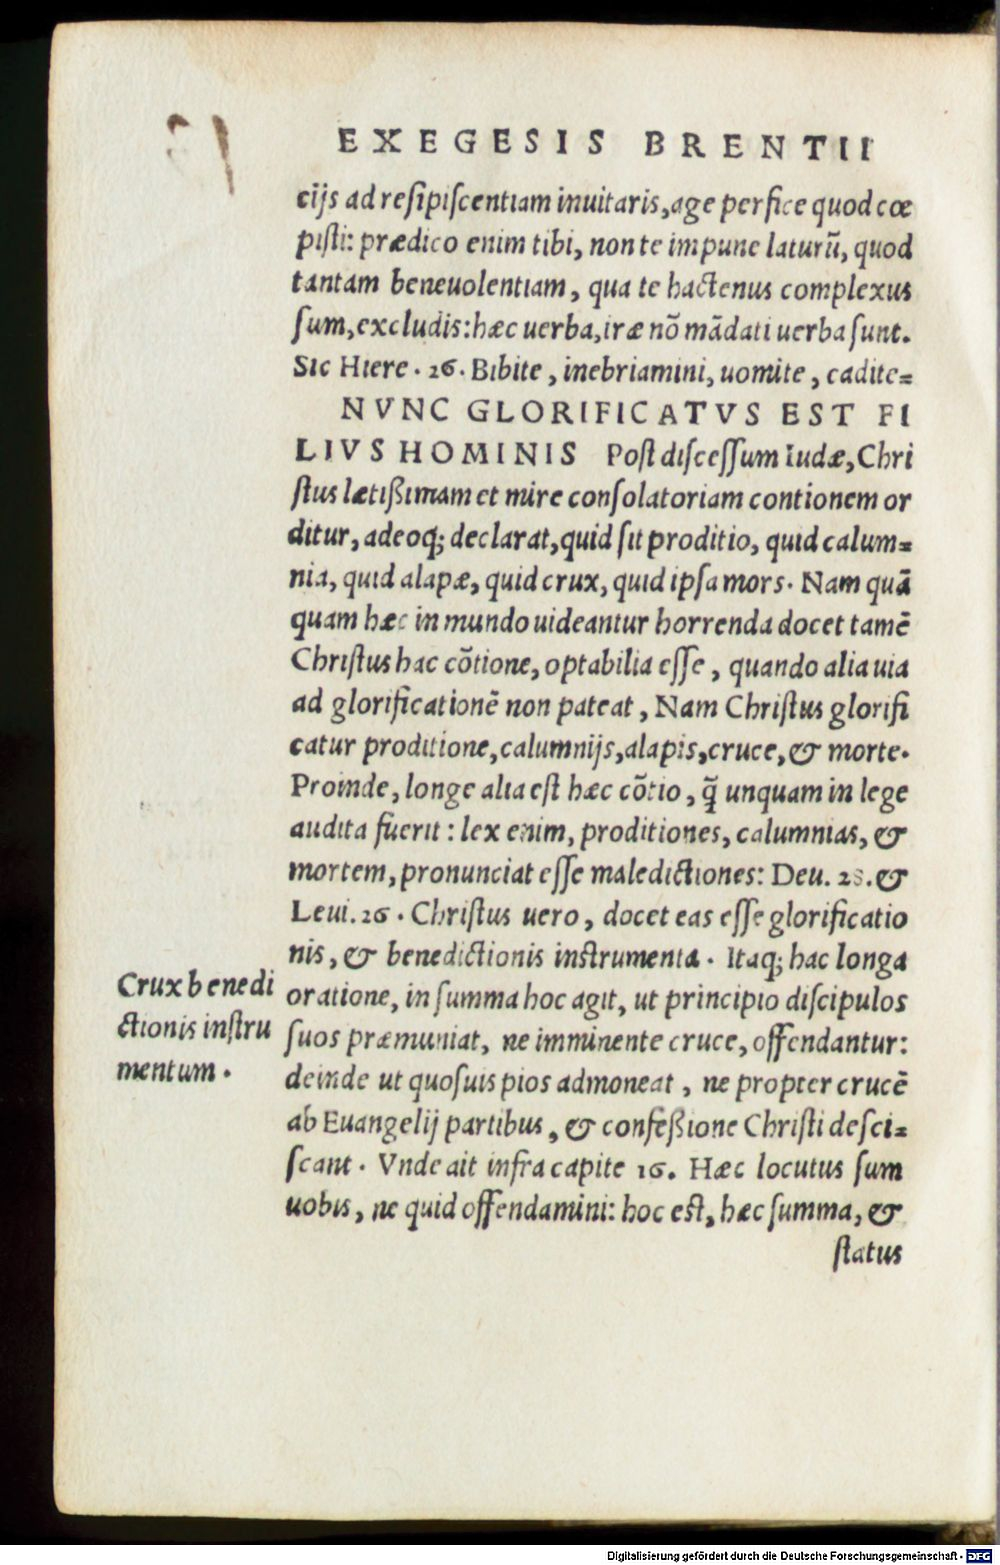 EXEGESIS BRENTII
cijs ad resipiscentiam inuitaris, age perfice quod cœ
pisti: prædico enim tibi, non te impune laturũ, quod
tantam beneuolentiam, qua te hactenus complexus
sum, excludis: hæc uerba, iræ nõ mãdati uerba sunt.
Sic Hiere. 26. Bibite, inebriamini, uomite, cadite=
NVNC GLORIFICATVS EST FI
LIVS HOMINIS Post discessum Iudæ, Chri
stus lætißimam et mire consolatoriam contionem or
ditur, adeoq; declarat, quid sit proditio, quid calum=
nia, quid alapæ, quid crux, quid ipsa mors. Nam quã
quam hæc in mundo uideantur horrenda docet tamẽ
Christus hac cõtione, optabilia esse, quando alia uia
ad glorificationẽ non pateat, Nam Christus glorifi
catur proditione, calumnijs, alapis, cruce, & morte.
Proinde, longe alia est hæc cõtio, q̃ unquam in lege
audita fuerit: lex enim, proditiones, calumnias, &
mortem, pronunciat esse maledictiones: Deu. 28. &
Leui. 26. Christus uero, docet eas esse glorificatio
nis, & benedictionis instrumenta. Itaq; hac longa
oratione, in summa hoc agit, ut principio discipulos
suos præmuniat, ne imminente cruce, offendantur:
deinde ut quosuis pios admoneat, ne propter crucẽ
ab Euangelij partibus, & confeßione Christi desci=
scant. Vnde ait infra capite 16. Hæc locutus sum
uobis, ne quid offendamini: hoc est, hæc summa, &
status
Crux benedi
ctionis instru
mentum.
Digitalisierung gefördert durch die Deutsche Forschungsgemeinschaft - DFG